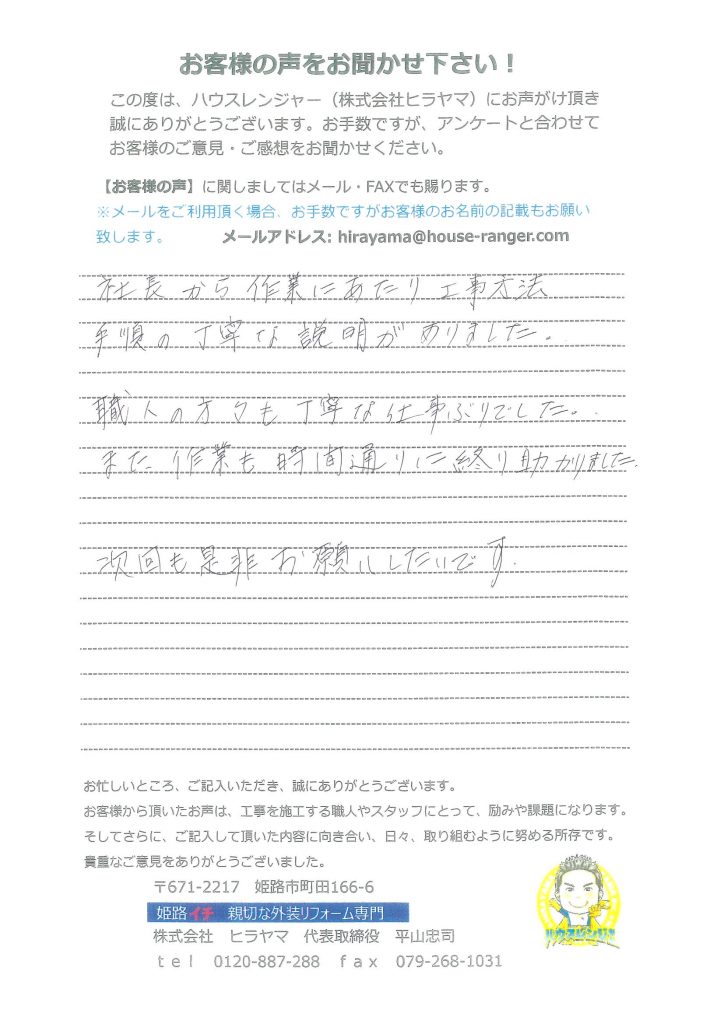 お客様の声をお聞かせ下さい！
この度は、ハウスレンジャー（株式会社ヒラヤマ）にお声がけ頂き
誠にありがとうございます。お手数ですが、アンケートと合わせて
お客様のご意見・ご感想をお聞かせください。
【お客様の声】に関しましてはメール・FAXでも賜ります。
※メールをご利用頂く場合、お手数ですがお客様のお名前の記載もお願い
致します。 メールアドレス: hirayama@house-ranger.com
社長から作業にあたり工事方法
手順の丁寧な説明がありました。
職人の方々も丁寧な仕事ぶりでした。
また作業も時間通りに終り助かりました。
次回も是非お願いしたいです。
お忙しいところ、ご記入いただき、誠にありがとうございます。
お客様から頂いたお声は、工事を施工する職人やスタッフにとって、励みや課題になります。
そしてさらに、ご記入して頂いた内容に向き合い、日々、取り組むように努める所存です。
貴重なご意見をありがとうございました。
〒671-2217 姫路市町田166-6
姫路イチ 親切な外装リフォーム専門
株式会社 ヒラヤマ 代表取締役 平山忠司
ｔｅｌ 0120-887-288 ｆａｘ 079-268-1031
ハウスレンジャー